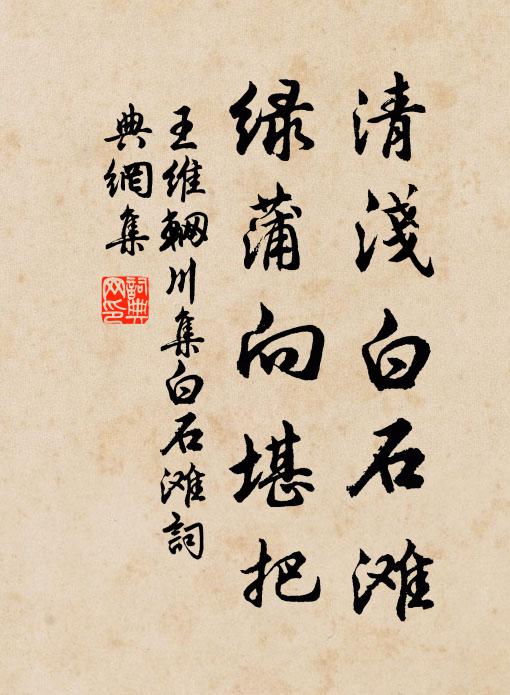 清淺白石滩
绿蒲向堪把
王維輞川集白石滩詞
典網集
詞典网印